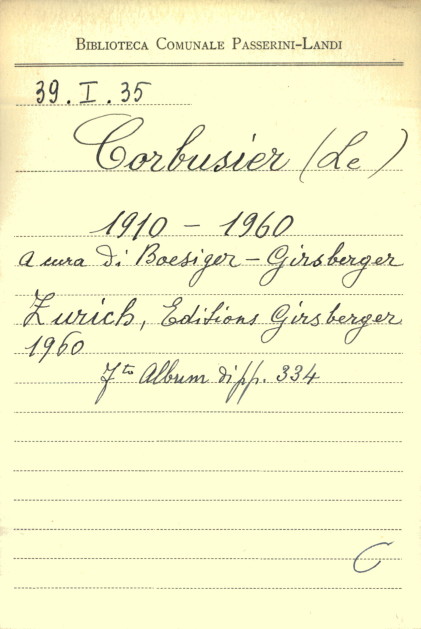 BIBLIOTECA COMUNALE PASSERINI-LANDI
39. I. 35
Corbusier (Le)
1910 - 1960
a cura di Boesiger - Girsberger
Zurich, Editions Girsberger
1960
Album di pp. 334
C